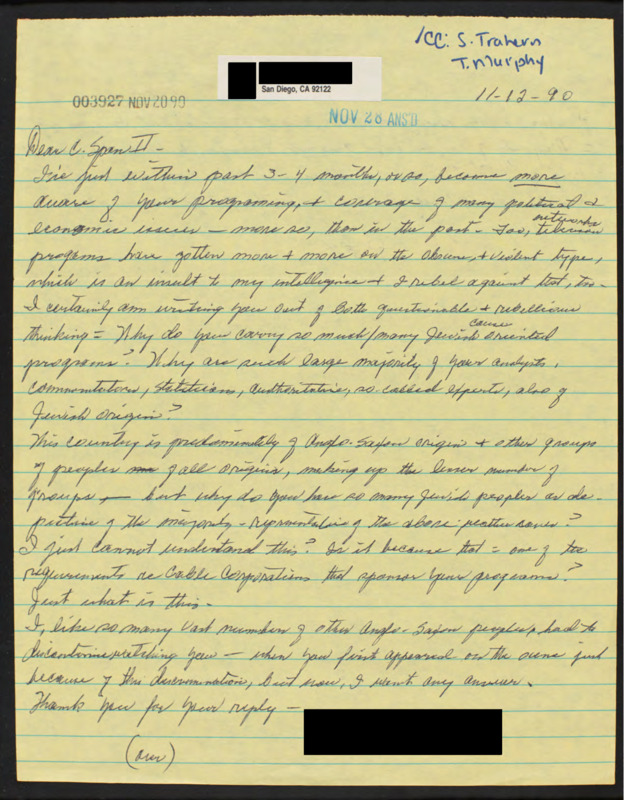 /CC: S. Trahern
T. Murphy
San Diego, CA 92122
11-12-90
003927 NOV 20 90
NOV 28 ANS'D
Dear C. Span II -
I've just within past 3-4 months, or so, become more
aware of your programing, + coverage of many political +
economic issues — more so, than in the past - Too, networks television
programs have gotten more + more on the obscene, + violent type,
which is an insult to my intelligence + I rebel against that, too -
I certainly am writing you out of both questionable + rebellious
thinking = Why do you carry so much/many Jewish cause oriented
programs? Why are such large majority of your analysts,
commentators, statiticians, authoritative, so called experts, also of
Jewish origin?
This country is predominately of Anglo-Saxon origin + other groups
of peoples of all origins, making up the lesser number of
groups — but why do you have so many Jewish peoples as de-
picture of the majority - representative of the above
I just cannot understand this? Is it because that = one of the
requirements re Cable Corporations that sponsor your programs?
Just what is this -
I, like so many vast number of other Anglo-Saxon peoples, had to
discontinue watching you — when you first appeared on the scene just
because of this discrimination, but now, I want any answer.
Thank you for your reply —
(over)